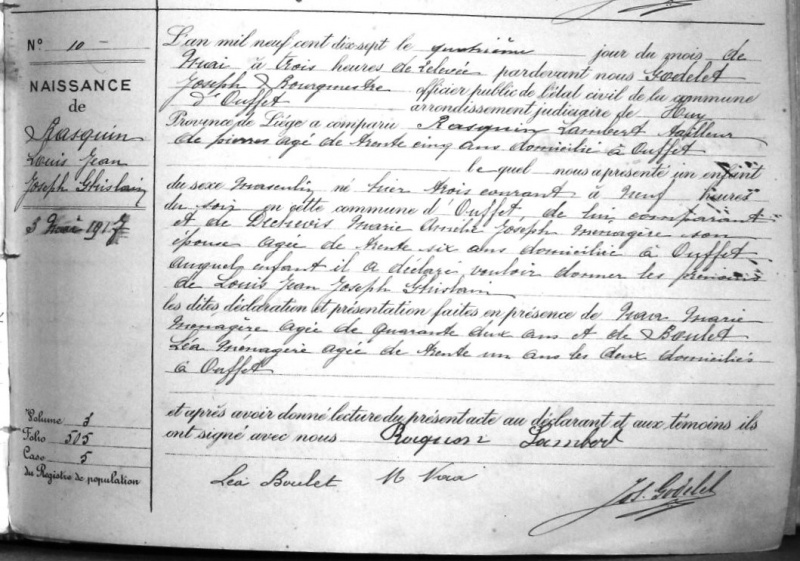 N° 10
NAISSANCE
de
Rasquin
Louis Jean
Joseph Ghislain
3 Mai 1917
Volume 3
Folio 505
Case 5
du Registre de population
L'an mil neuf cent dix sept le quatrième jour du mois de
Mai à trois heures de relevée pardevant nous Godelet
Joseph Bourgmestre officier public de l'état civil de la commune
d'Ouffet arrondissement judiciaire de Huy
Province de Liége a comparu Rasquin Lambert tailleur
de pierres agé de trente cinq ans domicilié à Ouffet
le quel nous a présenté un enfant
du sexe masculin né hier trois courant à neuf heures
du soir en cette commune d'Ouffet de lui comparant
et de Marie Amélie Joseph ménagère son
épouse agée de trente six ans domiciliée à Ouffet
auquel enfant il a déclaré vouloir donner les prénoms
de Louis Jean Joseph Ghislain
les dites déclaration et présentation faites en présence de Marie
Ménagère agée de quarante deux ans et de Boulet
Léa Ménagère agée de trente un ans les deux domiciliés
à Ouffet
et après avoir donné lecture du présent acte au déclarant et aux témoins ils
ont signé avec nous Rasquin Lambert
Léa Boulet M
Jos. Godelet